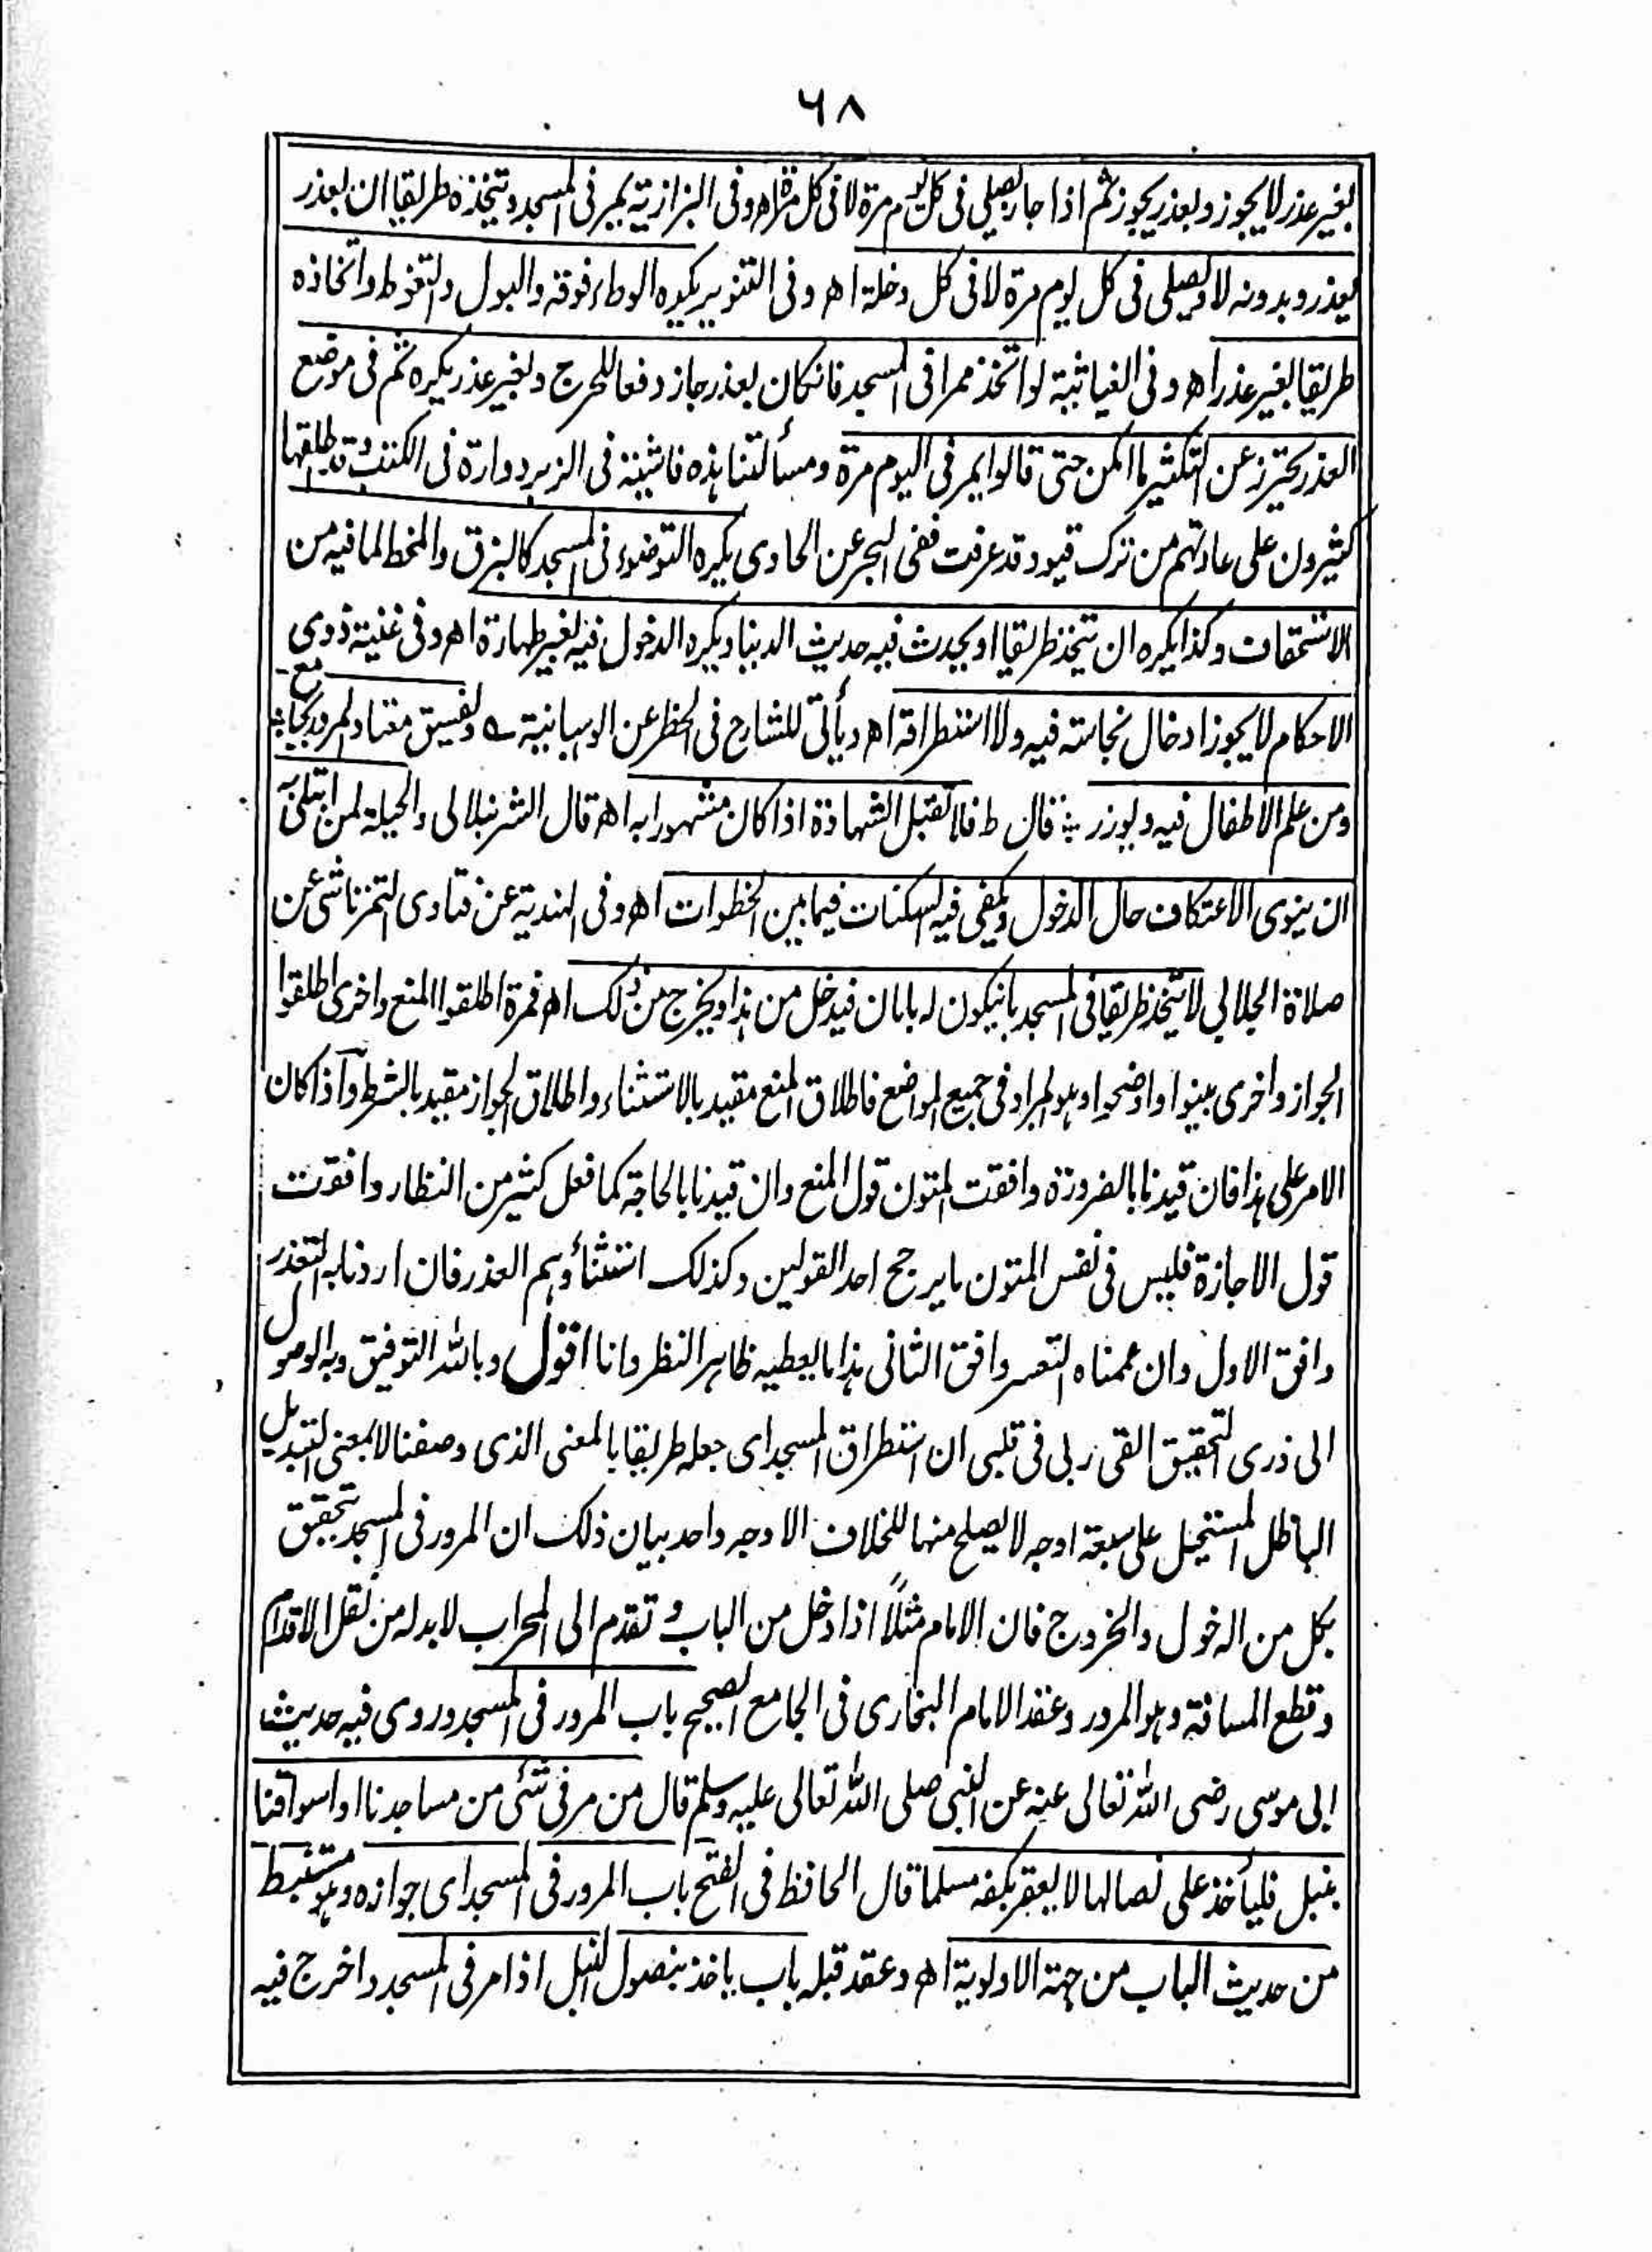 ٦٨
بغير عذر لا يجوز وبعذر يجوز ثم اذا جاز يصلى فى كل يوم مرة لا فى كل مرة اھ وفى البزازية يمر فى المسجد ويتخذه طريقا ان بعذر
يعذر وبدونه لا ويصلى فى كل يوم مرة لا فى كل دخلة اھ وفى التنوير يكره الوطاء فوقه والبول والتغوط واتخاذه
طريقا بغير عذر اھ وفى الغياثية لو اتخذ ممرا فى المسجد فانكان بعذر جاز دفعا للحرج ولغير عذر يكره ثم فى موضع
العذر يحترز عن التكثير ما امكن حتى قالوا يمر فى اليوم مرة ومسألتنا هذه فاشية فى الزبر دوارة فى الكتب وقد اطلقها
كثيرون على عادتهم من ترك قيود قد عرفت ففى البحر عن الحاوى يكره التوضوء فى المسجد كالبزق والمخط لما فيه من
الاستخفاف وكذا يكره ان يتخذ طريقا او يحدث فيه حديث الدنيا ويكره الدخول فيه لغير طهارة اھ وفى غنية ذوى
الاحكام لا يجوز ادخال نجاسته فيه ولا استطراقه اھ ويأتى للشارح فى الحظر عن الوهبانية ے ويفسق معتاد المرور بجامع ؛
ومن علم الاطفال فيه ويوزر ؛ قال ط فلا تقبل الشهادة اذا كان مشهورا به اھ قال الشرنبلالى والحيلة لمن ابتلى به
ان ينوى الاعتكاف حال الدخول ويكفى فيه السكنات فيما بين الخطوات اھ وفى الهندية عن فتاوى التمرتاشى عن
صلاة الجلالي لا يتخذ طريقا فى المسجد بانيكون له بابان فيدخل من هذا ويخرج من ذلك اھ فمرة اطلقوا المنع واخرى اطلقوا
الجواز واخرى بينوا واوضحوا وهو المراد فى جميع المواضع فاطلاق المنع مقيد بالاستثناء واطلاق الجواز مقيد بالشرط واذا كان
الامر على هذا فان قيدنا بالضرورة وافقت المتون قول المنع وان قيدنا بالحاجة كما فعل كثير من النظار وافقوت
قول الاجازة فليس فى نفس المتون ما يرجح احد القولين وكذلك استثناؤهم العذر فان اردنا به التعذر
وافق الاول وان عممناه التعسر وافق الثانى هذا ما يعطيه ظاهر النظر وانا اقول وبالله التوفيق وبه الوصول
الى ذرى التحقيق القى ربى فى قلبى ان استطراق المسجد اى جعله طريقا بالمعنى الذى وصفنا لا بمعنى التبديل
الباطل المستحيل على سبعة اوجه لا يصلح منها للخلاف الا وجه واحد بيان ذلك ان المرور فى المسجد يتحقق
بكل من الدخول والخروج فان الامام مثلاً اذا دخل من الباب و تقدم الى المحراب لا بد له من نقل الاقدام
وقطع المسافة وهو المرور وعقد الامام البخارى فى الجامع الصحيح باب المرور فى المسجد وروى فيه حديث
ابى موسى رضى الله تعالى عنه عن النبى صلى الله تعالى عليه وسلم قال من مر فى شئى من مساجدنا او اسواقنا
بنبل فليأخذ على نصالها لا يعقر بكفه مسلما قال الحافظ فى الفتح باب المرور فى المسجد اى جوازه وهو مستنبط
من حديث الباب من جهة الاولوية اھ وعقد قبله باب ياخذ بنصول النبل اذا مر فى المسجد واخرج فيه